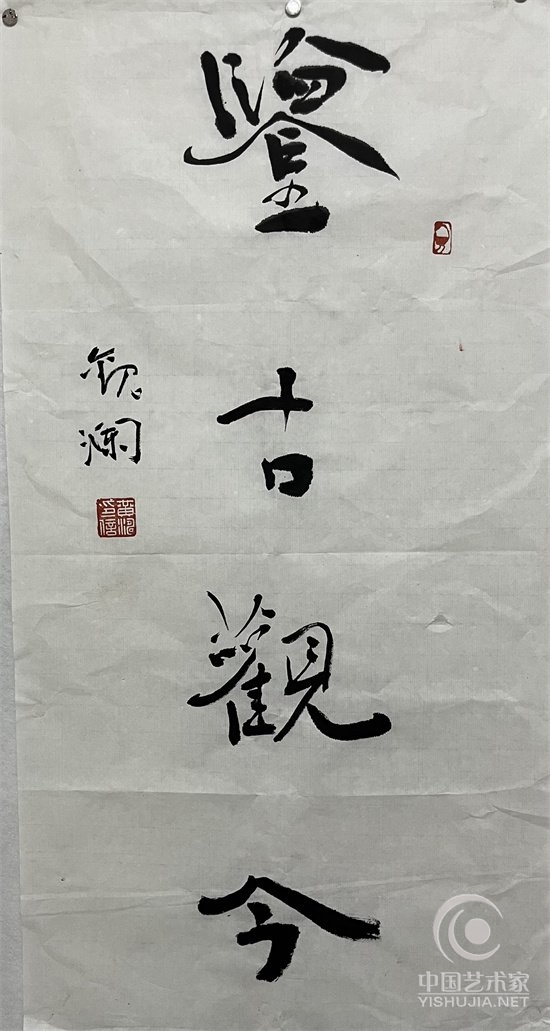 鑒古觀今
观澜
中国艺术家
YISHUJIA.NET